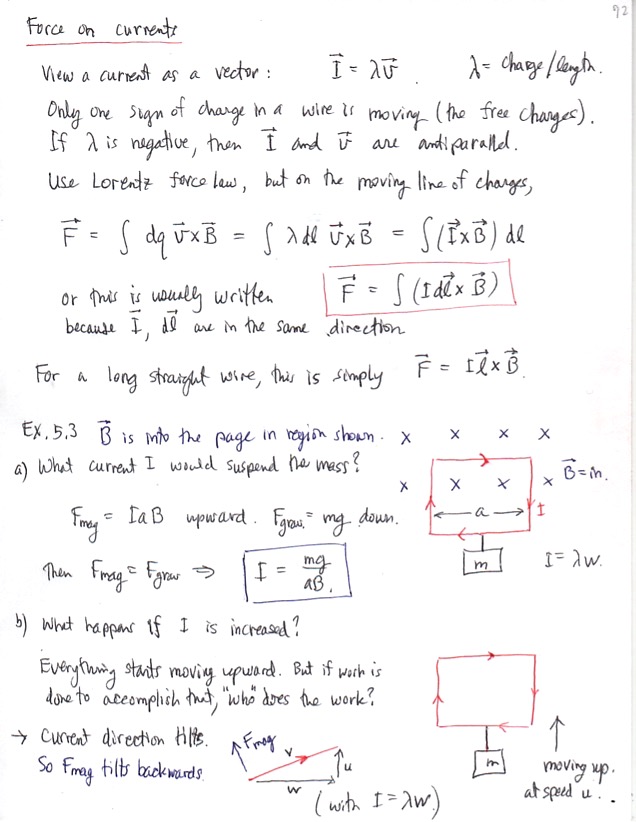 92
Force on currents
View a current as a vector: I⃗ = λv⃗. λ = charge/length.
Only one sign of charge in a wire is moving (the free charges).
If λ is negative, then I⃗ and v⃗ are antiparallel.
Use Lorentz force law, but on the moving line of charges,
F⃗ = ∫ dq v⃗×B⃗ = ∫ λdl v⃗×B⃗ = ∫(I⃗×B⃗) dl
or this is usually written F⃗ = ∫(I dl⃗ × B⃗)
because I⃗, dl⃗ are in the same direction
For a long straight wire, this is simply F⃗ = I l⃗ × B⃗.
Ex. 5.3 B⃗ is into the page in region shown. x x x x
a) What current I would suspend the mass? x x x x B⃗ = in.
F_mag = IaB upward. F_grav. = mg down. a I
Then F_mag = F_grav ⇒ I = mg/aB. m I = λw.
b) What happens if I is increased?
Everything starts moving upward. But if work is
done to accomplish that, "who" does the work?
→ Current direction tilts. F_mag v u m moving up.
So F_mag tilts backwards. w at speed u...
(with I = λw.)